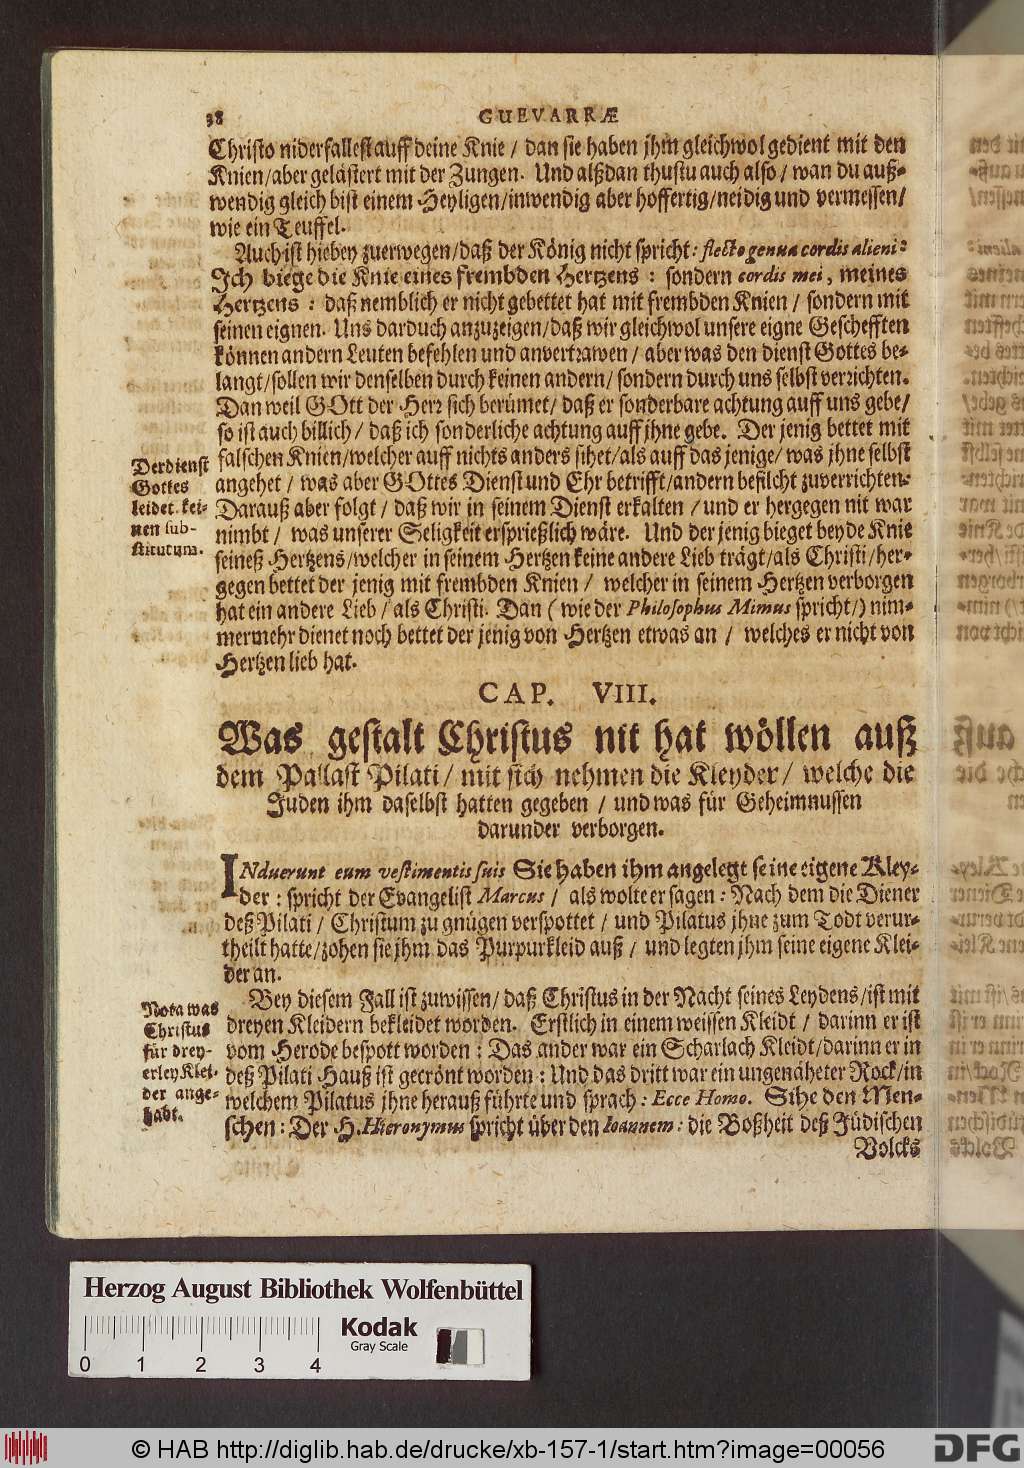 38
GUEVARRÆ
Christo niderfallest auff deine Knie / dan sie haben jhm gleichwol gedient mit den
Knien/aber gelästert mit der Zungen. Und alßdan thustu auch also / wan du auß-
wendig gleich bist einem Heyligen/inwendig aber hoffertig/neidig und vermessen/
wie ein Teuffel.
Auch ist hiebey zuerwegen/daß der König nicht spricht: flecto genua cordis alieni?
Ich biege die Knie eines frembden Hertzens: sondern cordis mei, meines
Hertzens: daß nemblich er nicht gebettet hat mit frembden Knien / sondern mit
seinen eignen. Uns darduch anzuzeigen/daß wir gleichwol unsere eigne Geschefften
können andern Leuten befehlen und anvertrawen / aber was den dienst Gottes be-
langt/sollen wir denselben durch keinen andern/ sondern durch uns selbst verrichten.
Dan weil GOtt der Herr sich berümet/ daß er sonderbare achtung auff uns gebe/
so ist auch billich / daß ich sonderliche achtung auff jhne gebe. Der jenig bettet mit
falschen Knien/welcher auff nichts anders sihet/als auff das jenige/ was jhne selbst
angehet / was aber GOttes Dienst und Ehr betrifft/andern befilcht zuverrichten.
Darauß aber folgt / daß wir in seinem Dienst erkalten / und er hergegen nit war
nimbt / was unserer Seligkeit ersprießlich wäre. Und der jenig bieget beyde Knie
seineß Hertzens/welcher in seinem Hertzen keine andere Lieb trägt/als Christi/her-
gegen bettet der jenig mit frembden Knien / welcher in seinem Hertzen verborgen
hat ein andere Lieb / als Christi. Dan ( wie der Philosophus Mimus spricht/) nim-
mermehr dienet noch bettet der jenig von Hertzen etwas an / welches er nicht von
Hertzen lieb hat.
Der dienst
Gottes
leidet kei-
nen sub-
stitutum.
CAP. VIII.
Was gestalt Christus nit hat wöllen auß
dem Pallast Pilati / mit sich nehmen die Kleyder / welche die
Juden ihm daselbst hatten gegeben / und was für Geheimnussen
darunder verborgen.
INduerunt eum vestimentis suis Sie haben ihm angelegt seine eigene Kley-
der : spricht der Evangelist Marcus / als wolte er sagen : Nach dem die Diener
deß Pilati / Christum zu gnügen verspottet / und Pilatus jhne zum Todt verur-
theilt hatte/zohen sie jhm das Purpurkleid auß / und legten jhm seine eigene Klei-
der an.
Bey diesem Fall ist zuwissen/ daß Christus in der Nacht seines Leydens/ist mit
dreyen Kleidern bekleidet worden. Erstlich in einem weissen Kleidt / darinn er ist
vom Herode bespott worden : Das ander war ein Scharlach Kleidt/darinn er in
deß Pilati Hauß ist gecrönt worden : Und das dritt war ein ungenäheter Rock/in
welchem Pilatus jhne herauß führte und sprach: Ecce Homo. Sihe den Men-
schen : Der H. Hieronymus spricht über den Ioannem: die Boßheit deß Jüdischen
Volcks
Nota was
Christus
für drey-
erley Klei-
der ange-
habt.
Herzog August Bibliothek Wolfenbüttel
Kodak
Gray Scale
0 1 2 3 4
© HAB http://diglib.hab.de/drucke/xb-157-1/start.htm?image=00056
DFG